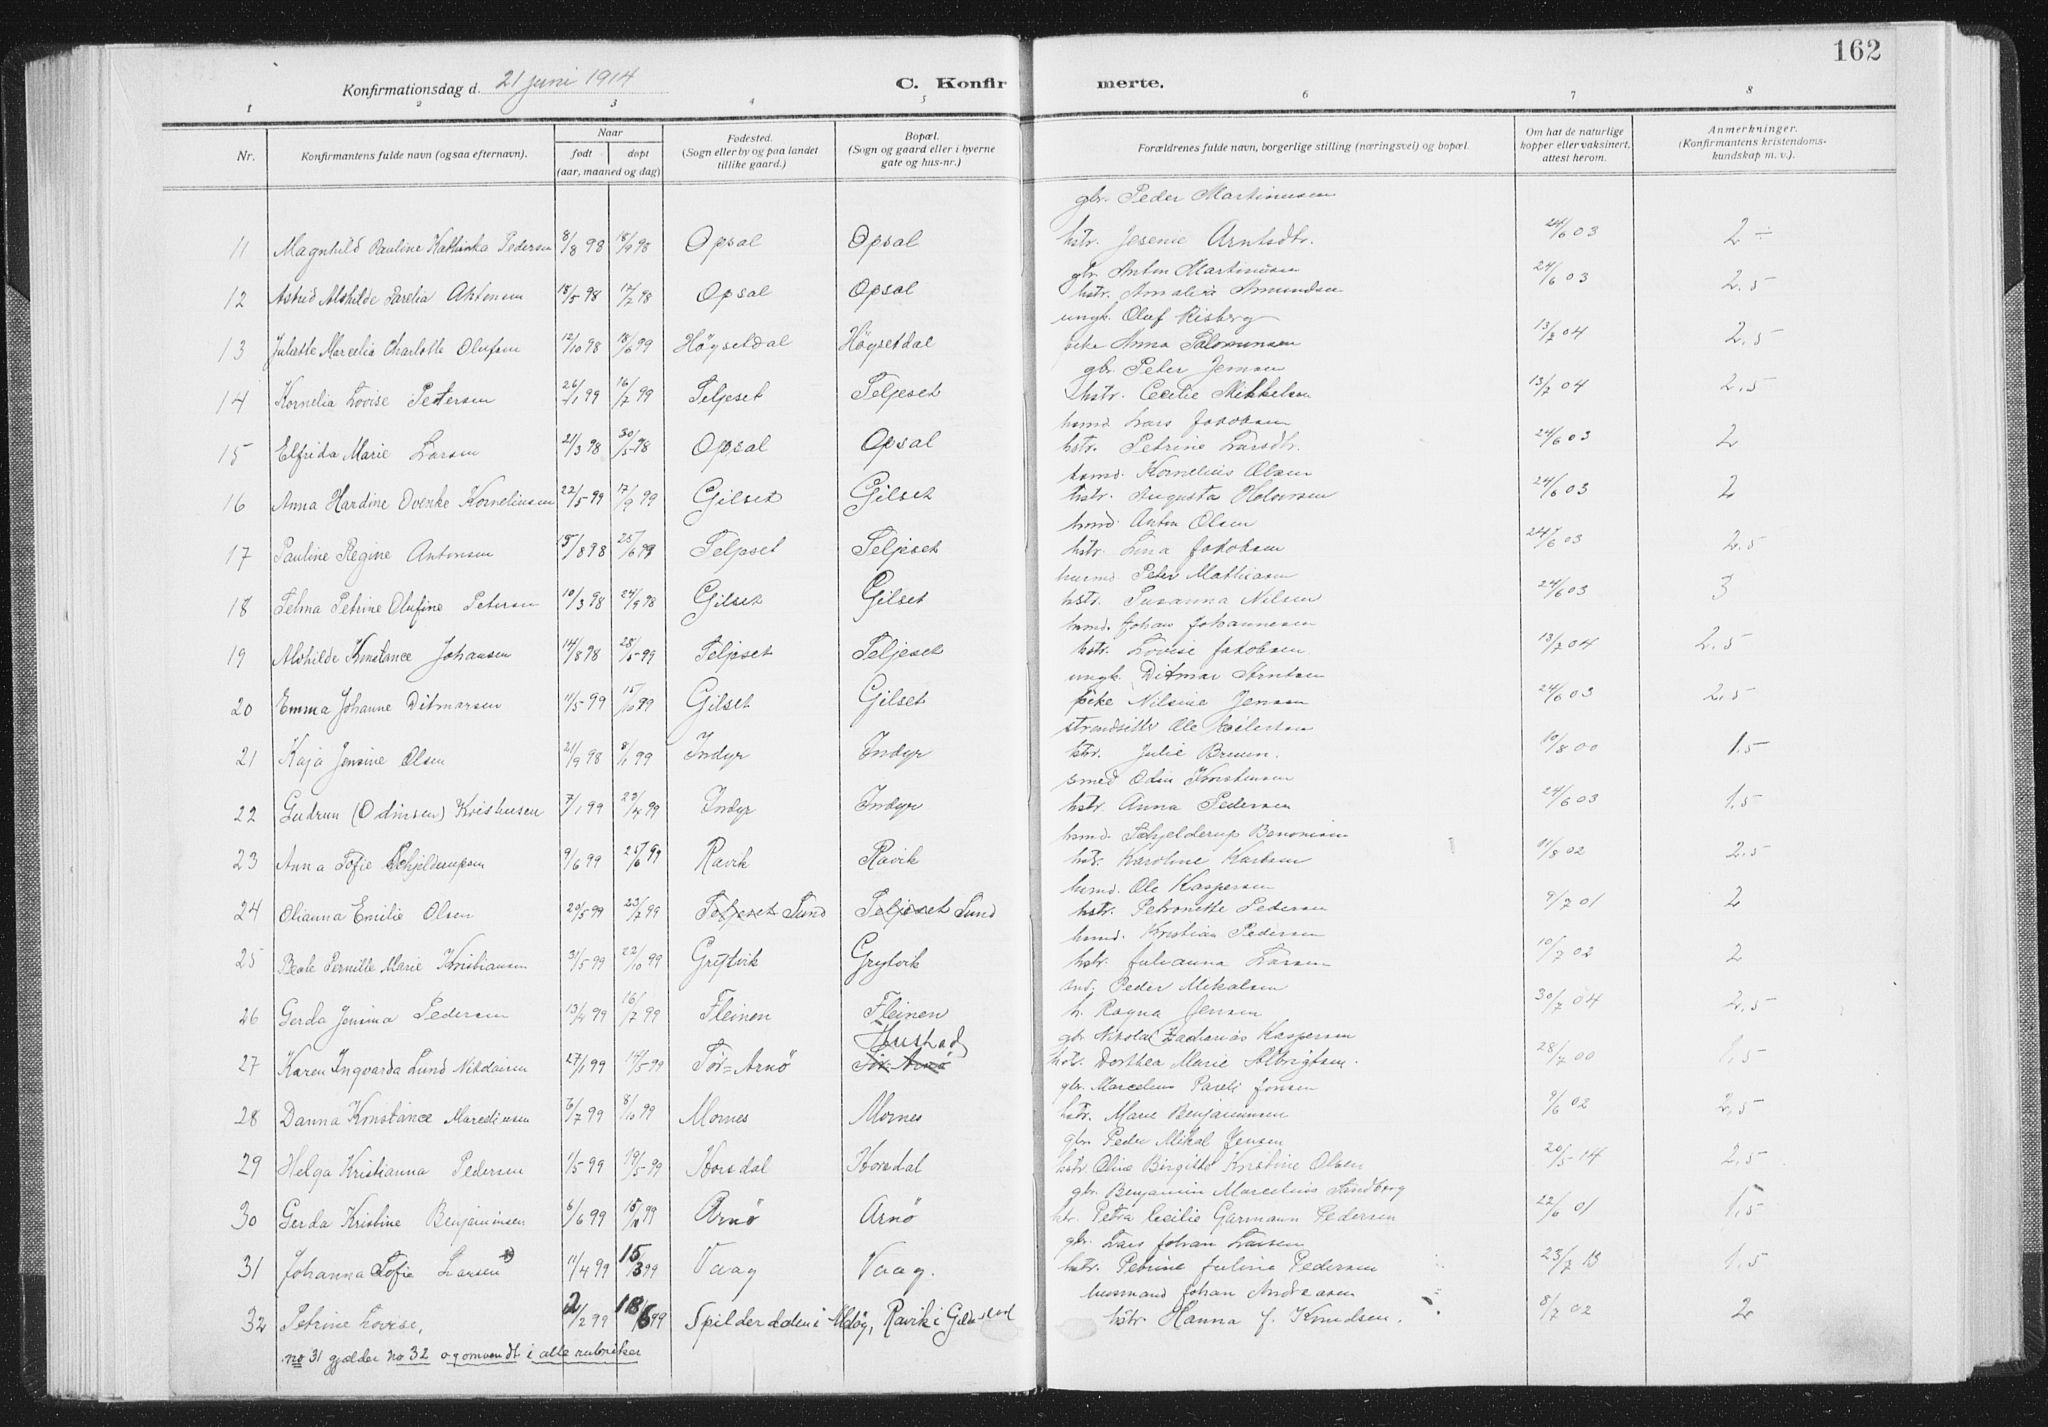 162
Konfirmationsdag d. 21 juni 1914
C. Konfirmerte.
1 2 3 4 5 6 7 8
Nr.
Konfirmantens fulde navn (ogsaa efternavn).
Naar
født døpt
(aar, maaned og dag)
Fødested.
(Sogn eller by og paa landet
tillike gaard.)
Bopæl.
(Sogn og gaard eller i byerne
gate og hus-nr.)
Forældrenes fulde navn, borgerlige stilling (næringsvei) og bopæl.
Om hat de naturlige
kopper eller vaksinert,
attest herom.
Anmerkninger.
(Konfirmantens kristendoms-
kundskap m. v.).
gbr. Peder Martinussen
11 Magnhild Pauline Kathinka Pedersen 8/8 98 18/9 98 Opsal Opsal hstr. Jesenie Arntsdtr. 24/6 03 2 ÷
gbr. Anton Martinusen
12 Astrid Alshilde Parelia Antonsen 18/5 98 17/2 98 Opsal Opsal hstr. Amalia Amundsen 24/6 03 2.5
ungk. Oluf Risberg
13 Juliette Marcelia Charlotte Olufsen 12/10 98 18/6 99 Höysetdal Höysetdal pike Anna Salomonsen 13/7 04 2.5
gbr. Peter Jensen
14 Kornelia Lovise Petersen 26/1 99 16/7 99 Teljeset Teljeset hstr. Cecilie Mikkelsen 13/7 04 2.5
husmd. Lars Jakobsen
15 Elfrida Marie Larsen 21/3 98 30/5 98 Opsal Opsal hstr. Petrine Larsdtr. 24/6 03 2
husmd. Kornelius Olsen
16 Anna Hardine Ovenke Korneliussen 22/5 99 17/9 99 Gilset Gilset hstr. Augusta Halvorsen 24/6 03 2
husmd. Anton Olsen
17 Pauline Regine Antonsen 15/8 98 25/6 99 Teljeset Teljeset hstr. Lina Jakobsen 24/6 03 2.5
husmd. Peter Mathiasen
18 Selma Petrine Olufine Petersen 10/3 98 24/9 98 Gilset Gilset hstr. Susanna Nilsen 24/6 03 3
husmd. Johan Johannesen
19 Alshilde Konstance Johansen 14/8 98 28/5 99 Teljeset Teljeset hstr. Lovise Jakobsen 13/7 04 2.5
ungk. Ditmar Arntsen
20 Emma Johanne Ditmarsen 11/5 99 15/10 99 Gilset Gilset pike Nilsine Jensen 24/6 03 2.5
strandsitter Ole
21 Kaja Jensine Olsen 21/9 98 8/1 99 Indyr Indyr hstr. Julie Bruun. 10/8 00 1.5
smed Odin Kristensen
22 Gudrun (Odinsen) Kristensen 7/1 99 23/4 99 Indyr Indyr hstr. Anna Pedersen 24/6 03 1.5
husmd. Schjelderup Benonisen
23 Anna Sofie Schjelderupsen 9/6 99 25/6 99 Ravik Ravik hstr. Karoline Karlsen 11/8 02 2.5
husmd. Ole Kaspersen
24 Olianna Emilie Olsen 20/5 99 23/7 99 Teljeset Sund Teljeset Sund hstr. Petronette Pedersen 9/7 01 2
husmd. Kristian Pedersen
25 Beate Pernille Marie Kristiansen 31/5 99 22/10 99 Grytvik Grytvik hstr. Julianna Larsen 10/7 02 2
Peder Mikalsen
26 Gerda Jensina Pedersen 13/4 99 16/7 99 Fleinen Fleinen h. Ragna Jensen 30/7 04 2.5
gbr. Nikolai Zacharias Kaspersen
Hustad
27 Karen Ingvarda Lund Nikolaisen 27/1 99 14/5 99 Sör-Arnö Sör-Arnö hstr. Dorthea Marie Albrigtsen. 28/7 00 1.5
gbr. Marcelius Pareli Jonsen
28 Danna Konstance Marcelinsen 6/7 99 8/10 99 Mornes Mornes hstr. Marie Benjaminsen 9/6 02 2.5
gbr. Peder Mikal Jensen
29 Helga Kristianna Pedersen 1/5 99 19/5 99 Korsdal Korsdal hstr. Oline Birgitte Kristine Olsen 20/5 14 2.5
gbr. Benjamin Marcelius Sandberg
30 Gerda Kristine Benjaminsen 6/6 99 15/10 99 Arnö Arnö hstr. Petra Cecilie Garmann Pedersen 22/6 01 1.5
gbr. Lars Johan Larsen
31 Johanna Sofie Larsen *) 11/4 99 15/3 99 Vaag Vaag. hstr. Petrine Juline Pedersen 23/7 13 1.5
husmand Johan Andreasen
32 Petrine Lovise, 2/2 99 18/6 99 Spilderdalen i Meløy, Ravik i Gildeskaal hstr. Hanna J. Knudsen. 8/7 02 2
no 31 gjælder no 32 og omvendt i alle rubriker